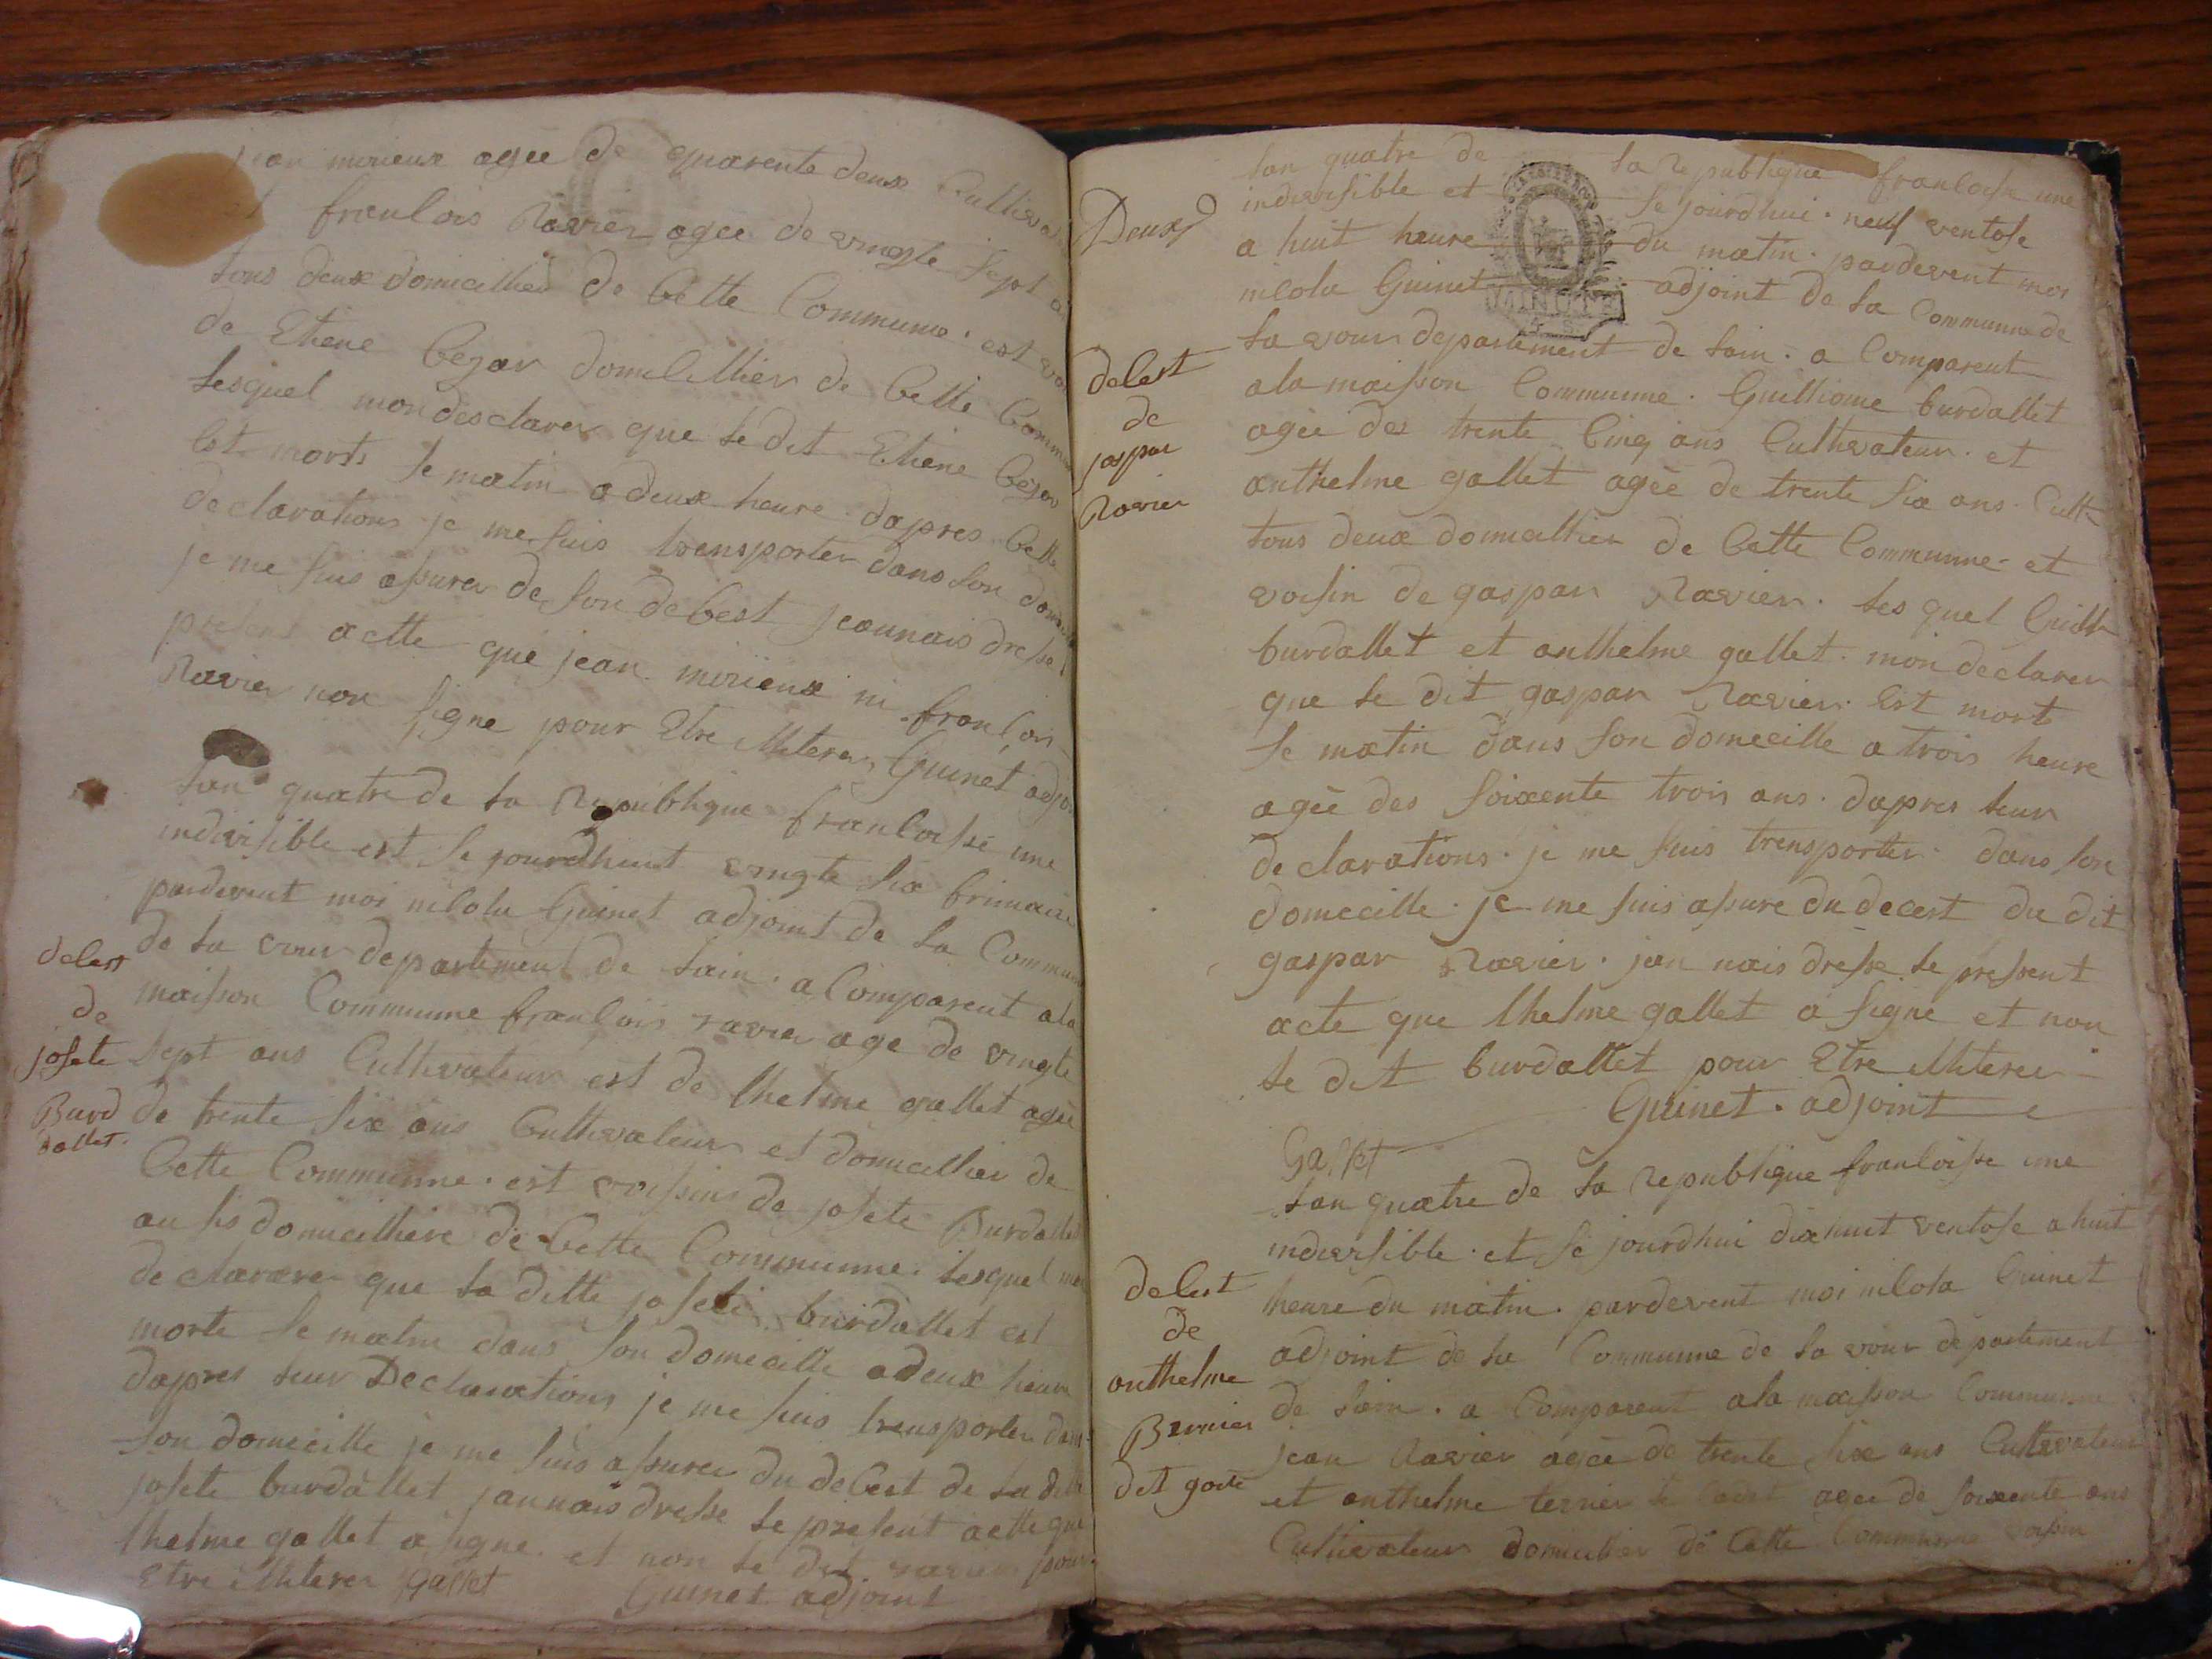 jean mirieux agée de quarente deux Cultiva
et francois Ravier agée de vingte sept an
tous deux domicillier de Cette Commune. est voi
de Etiene Cezar domicillier de Cette Commun
lesquel mon desclarer que le dit Etiene Cezar
Cet morts le matin a deux heure. dapres Cette
declarations je me suis transporter dans son domi
je me suis assurer de son decest jeannais dresse l
present actte que jean mirieux ni francois
Ravier non signe pour Etre illiterer Guinet adjoi
lan quatre de la Republique francoisse une
indivisible est le jourdhuit vingte six frimaire
pardevent moi nicola Guinet adjoint de la Commune
de la vour departement de lain. a Comparent ala
maisson Commune francois ravier age de vingte
sept ans Cultivateur est de lhelme gallet agée
de trente six ans Cultivateur et domicillier de
Cette Commune. est voissins de josete Burdallet
au sis domicilliere de Cette Commune. lesquel mon
declarerer que la ditte josete burdallet est
morte le matin dans son domicille a deux heure
dapres leur Declarations je me suis transporter dans
son domicille je me suis assurer du decest de la ditte
josete burdallet jannais dresse le present actte que
lhelme gallet a signe et non le dit ravier pour
Etre illiterer Gallet Guinet adjoint
decest
de
josete
Burd
dallet.
Deux
lan quatre de la Republique francoise une
indivisible et le jourdhui. neuf ventose
a huit heure du matin. pardevent moi
nicola Guinet adjoint de la Commune de
la vour departement de lain. a Comparent
ala maisson Commune. Guilliome burdallet
agée des trente Cinq ans Cultivateur. et
anthelme gallet agée de trente six ans. Cult
tous deux domicillier de Cette Commune et
voisin de gaspar Ravier. les quel Guill
burdallet et anthelme gallet. mon declarer
que le dit gaspar Ravier. Est mort
le matin dans son domecille a trois heure
agée des soixente trois ans. dapres leur
declarations. je me suis transporter. dans son
domecille. je me suis assure du decest du dit
gaspar Ravier. jan nais dresse le pressent
acte que lhelme gallet a signe et non
le dit burdallet pour Etre illiterer
Guinet. adjoint
Gallet
decest
de
jaspar
Ravier
lan quatre de la Republique francoisse une
indivisible. et le jourdhui dix huit ventose a huit
heure du matin. pardevent moi nicola Guinet
adjoint de la Commune de la vour departement
de lain. a Comparent ala maisson Commune
jean Ravier agée de trente six ans Cultivateur
et anthelme terrier le agee de soixente ans
Cultivateur domicillier de Cette Commune voisin
decest
de
anthelme
Bernier
dit